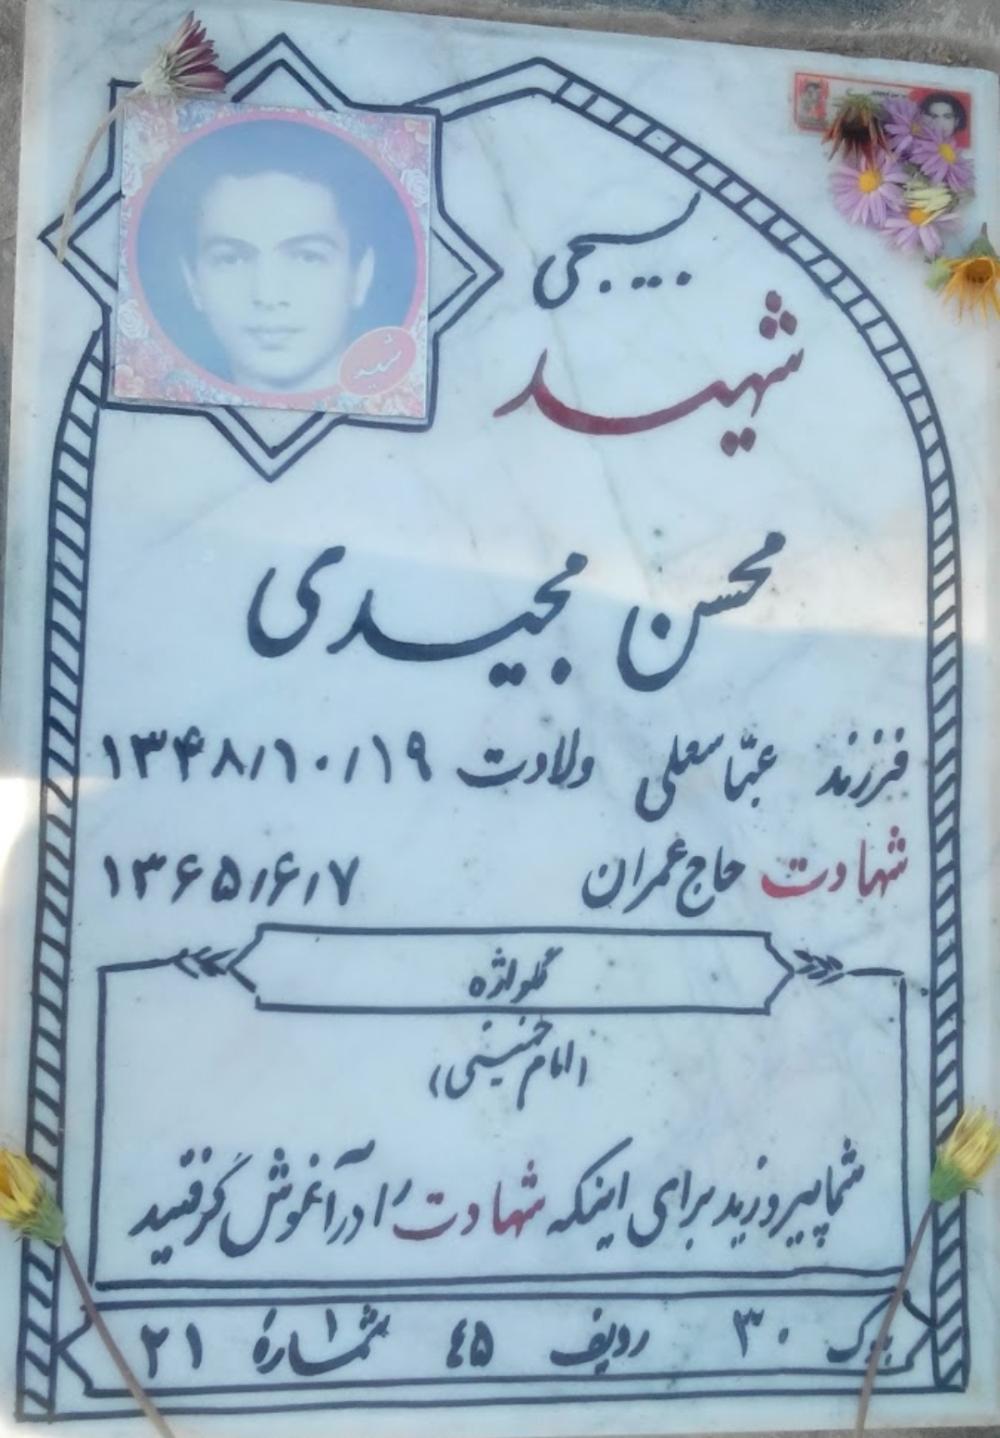 بسیجی
شهید
شهید
محسن مجیدی
فرزند عبّاسعلی ولادت ۱۳۴۸/۱۰/۱۹
شهادت حاج عمران ۱۳۶۵/۶/۷
گلواژه
(امام خمینی)
شما پیروزید برای اینکه شهادت را در آغوش گرفتید
بلوک ۳۰ ردیف ۴۵ شماره ۲۱